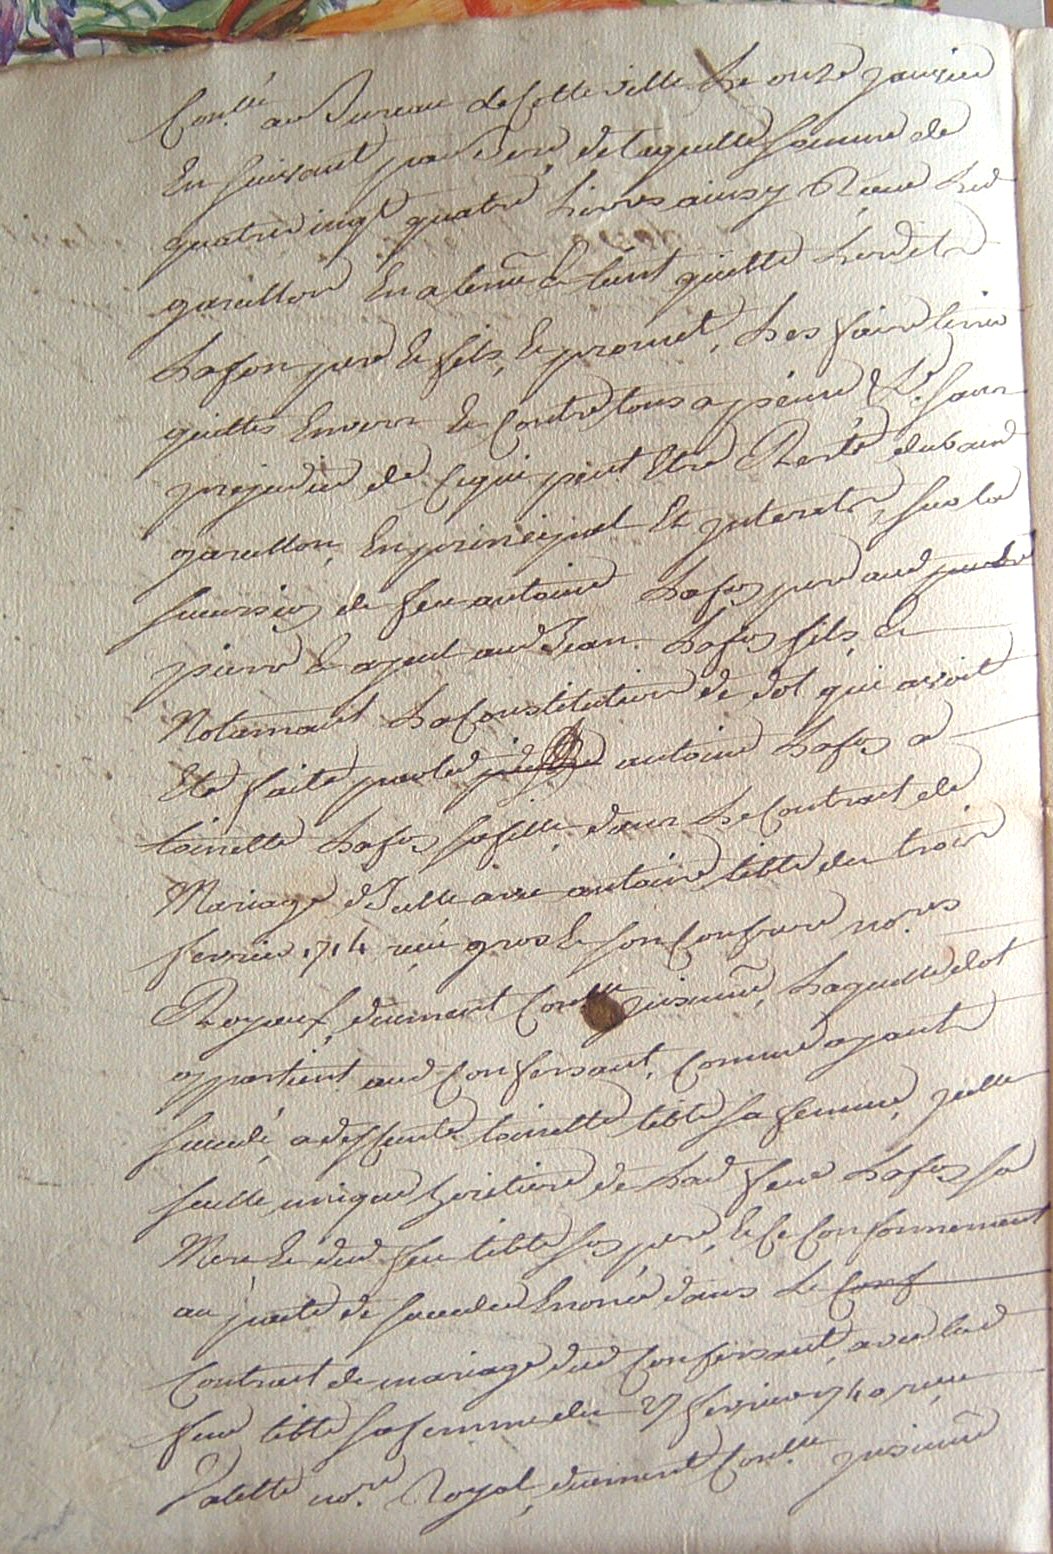 Con.llé au Bureau de Cette ville Le onze janvier
En suivant par Bern, de laquelle somme de
quatrevingt quatre Livres ainsy Recue Led
garillon En a tenu & tient quitte Lesd.
Lafon pere & fils, & promet, Les faire tenir
quittes Envers & Contre tous a peine &c. sans
prejudice de Ce qui peut Etre Resté du aud
garillon, En principal Et interets, sur la
succession de feu antoine Lafon pere aud
pierre & ayeul aud Jean Lafon fils, &
Notamant La Constitution de dot qui avoit
Eté faite par led antoine Lafon a
toinette Lafon sa fille dans Le Contract de
Mariage d'Icelle avec antoine tible du trois
fevrier 1714 recu gros & son Confrere no.res
Royaux, duement Con.llé insinué, Laquelle dot
appartient aud Confessant, Comme ayant
succedé, a deffunte toinette tible sa femme, jcelle
seulle unique heritiere de Lad feue Lafon sa
Mere & dud feu tible son pere, & Ce Conformement
au pacte de succeder Enoncé dans Le Conf
Contract de mariage dud Confessant, avec lad
feue tible sa femme du 27 fevrier 1740 recu
Valette no.re Royal, duement Con.llé insinué